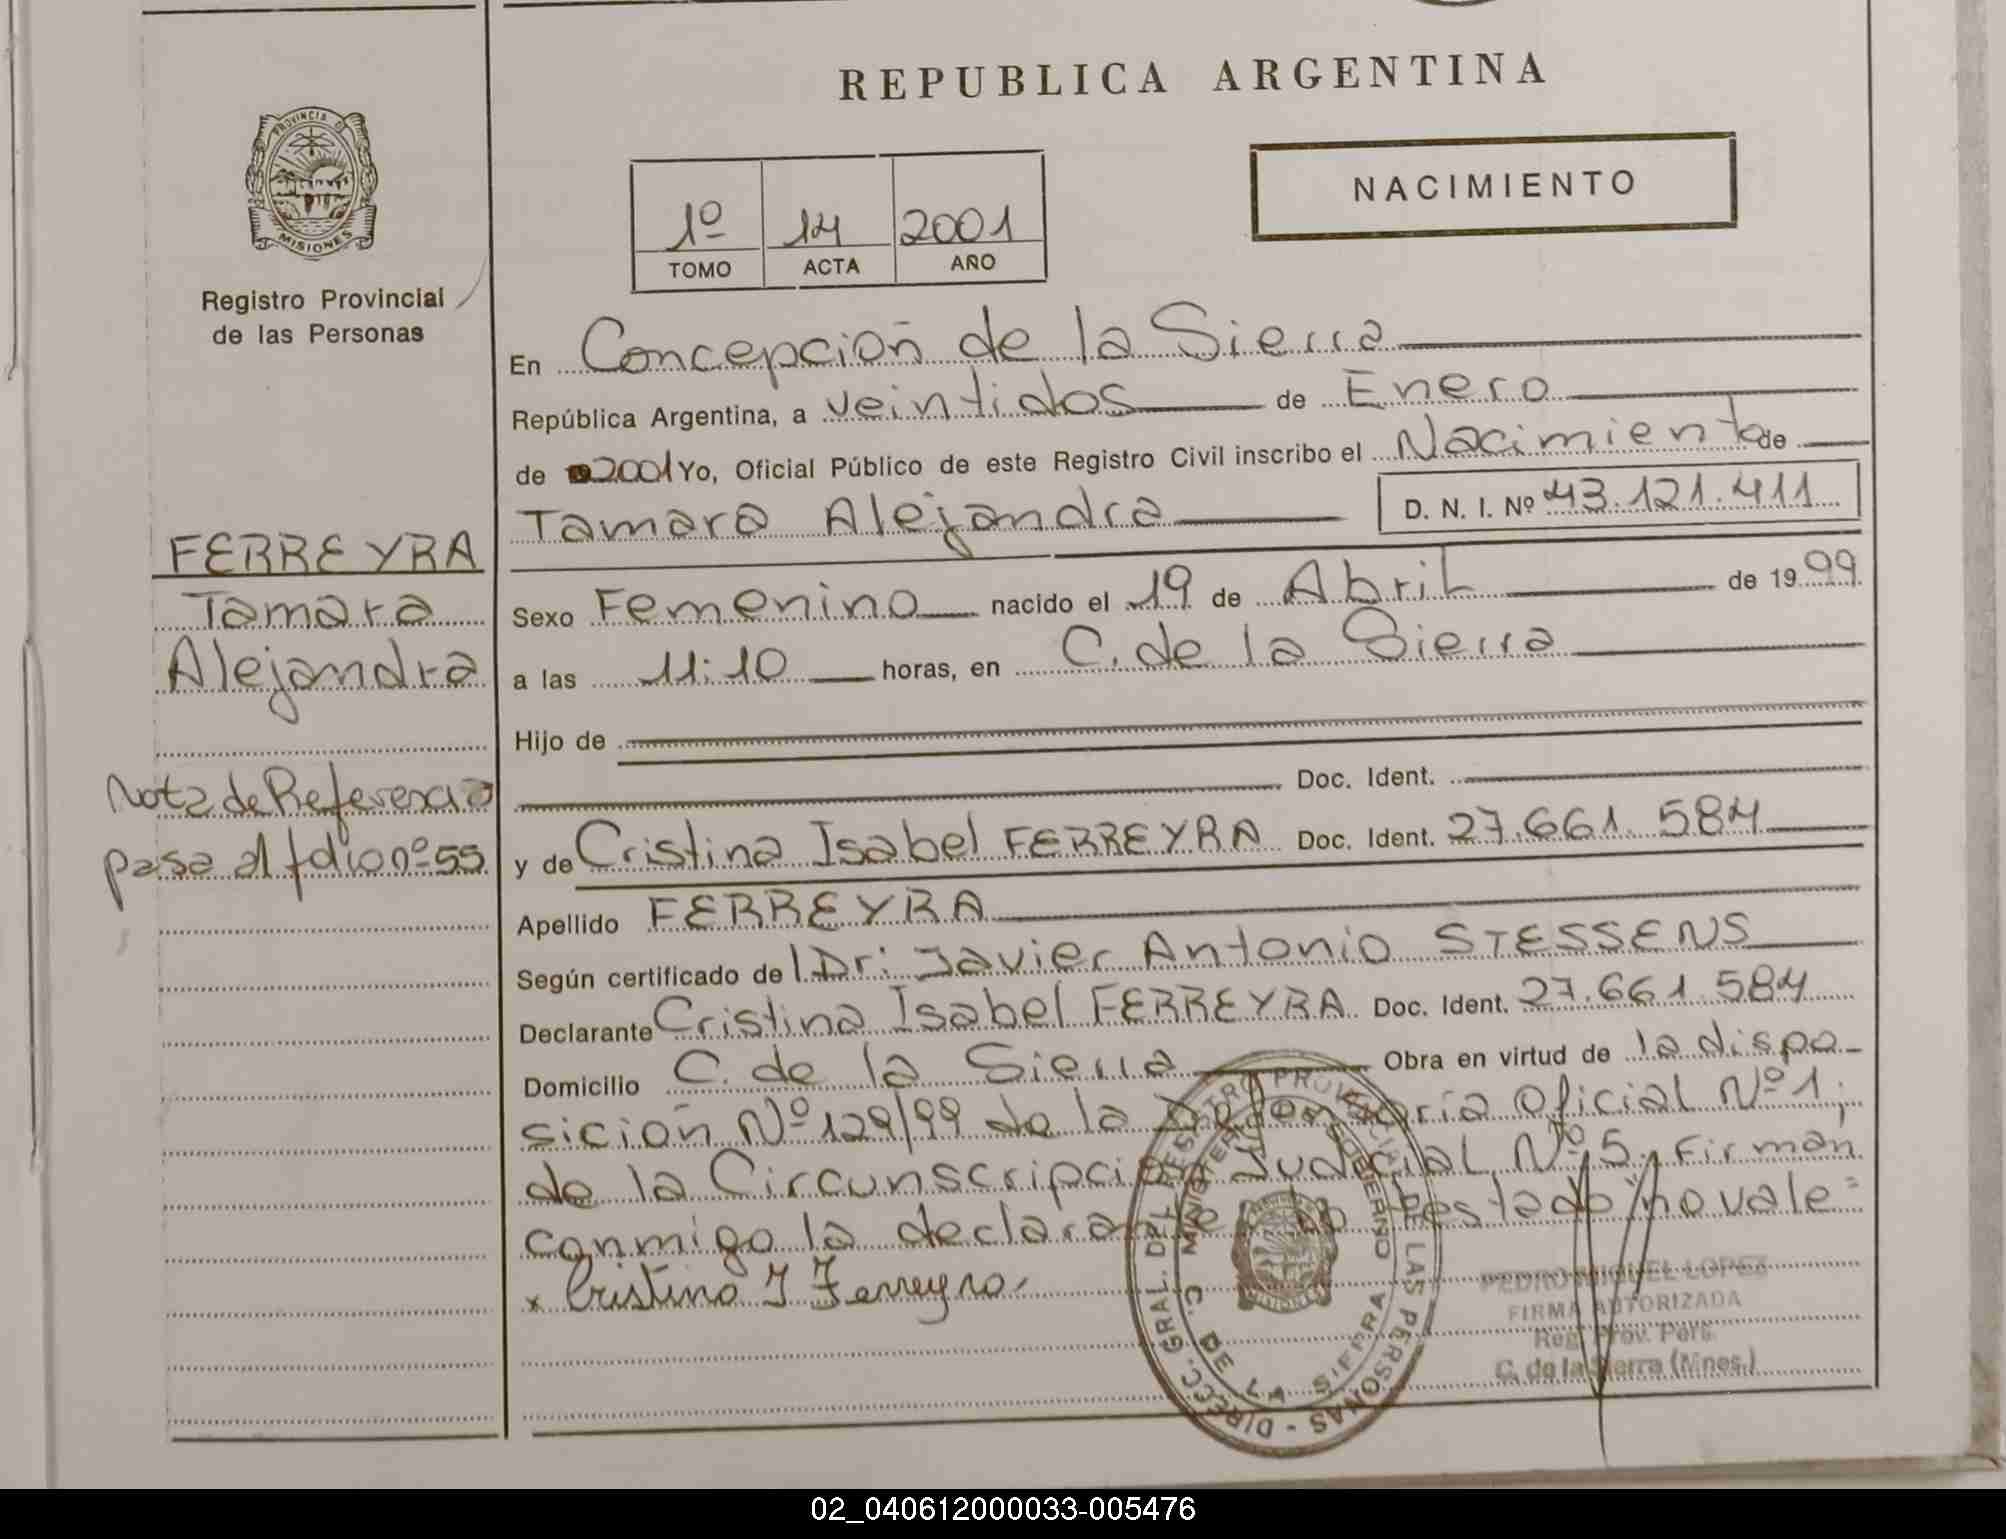 REPUBLICA ARGENTINA
PROVINCIA DE
MISIONES
Registro Provincial
de las Personas
NACIMIENTO
1º 14 2001
TOMO ACTA AÑO
En Concepción de la Sierra
República Argentina, a veintidos de Enero
de 2001 Yo, Oficial Público de este Registro Civil inscribo el Nacimiento de
Tamara Alejandra D. N. I. Nº 43.121.411
FERREYRA
Tamara
Alejandra
Sexo Femenino nacido el 19 de Abril de 1999
a las 11:10 horas, en C. de la Sierra
Hijo de
Doc. Ident.
Nota de Referencia
pasa al folio nº 55
y de Cristina Isabel FERREYRA Doc. Ident. 27.661.584
Apellido FERREYRA
Según certificado del Dr: Javier Antonio STESSENS
Declarante Cristina Isabel FERREYRA Doc. Ident. 27.661.584
Domicilio C. de la Sierra Obra en virtud de la dispo
sición Nº 129/99 de la Defensoría Oficial Nº 1,
de la Circunscripción Judicial Nº 5. Firman
conmigo la declarante Lo testado "no vale"
x Cristina I Ferreyra
DIRECC. GRAL. DEL REGISTRO PROVINCIAL DE LAS PERSONAS
MINISTERIO DE GOBIERNO
C. DE LA SIERRA
PEDRO MIGUEL LOPEZ
FIRMA AUTORIZADA
Reg. Prov. Pers.
C. de la Sierra (Mnes.)
02_040612000033-005476